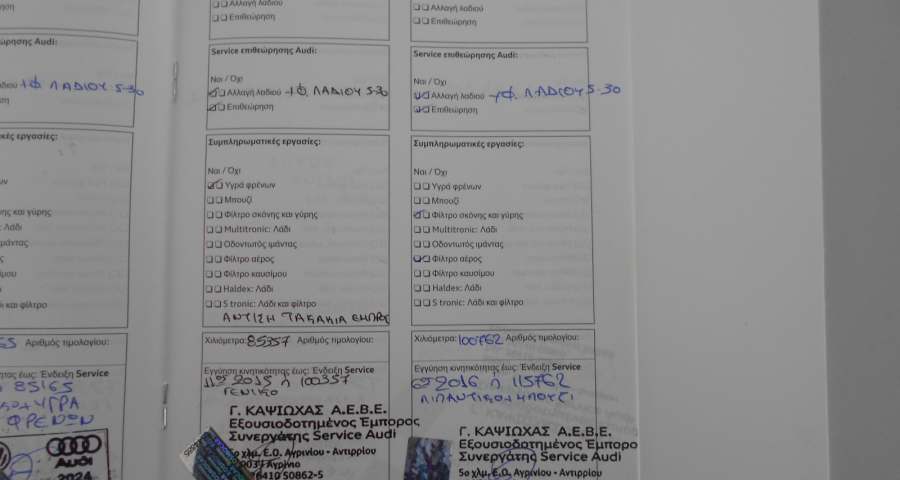 ηση
ώρησης Audi:
δίου +Φ. ΛΑΔΙΟΥ 5-30
ση
κές εργασίες:
ων
νης και γύρης
: Λάδι
μάντας
ς
ίμου
ι
ι και φίλτρο
Αριθμός τιμολογίου:
τας έως: Ένδειξη Service
85165
ΥΓΡΑ
ΦΡΕΝΩΝ
Audi
2024
Αλλαγή λαδιού
Επιθεώρηση
Service επιθεώρησης Audi:
Ναι / Όχι
Αλλαγή λαδιού +Φ. ΛΑΔΙΟΥ 5-30
Επιθεώρηση
Συμπληρωματικές εργασίες:
Ναι / Όχι
Υγρά φρένων
Μπουζί
Φίλτρο σκόνης και γύρης
Multitronic: Λάδι
Οδοντωτός ιμάντας
Φίλτρο αέρος
Φίλτρο καυσίμου
Haldex: Λάδι
S tronic: Λάδι και φίλτρο
ΑΝΤΙΣΗ ΤΑΚΑΚΙΑ ΕΜΠΡΟΣ
Χιλιόμετρα: 85357 Αριθμός τιμολογίου:
Εγγύηση κινητικότητας έως: Ένδειξη Service
2015 ή 100357
ΓΕΝΙΚΟ
Γ. ΚΑΨΙΩΧΑΣ Α.Ε.Β.Ε.
Εξουσιοδοτημένος Έμπορος
Συνεργάτης Service Audi
5ο χλμ. Ε.Ο. Αγρινίου - Αντιρρίου
Αγρίνιο
26410 50862-5
Αλλαγή λαδιού
Επιθεώρηση
Service επιθεώρησης Audi:
Ναι / Όχι
Αλλαγή λαδιού +Φ. ΛΑΔΙΟΥ 5-30
Επιθεώρηση
Συμπληρωματικές εργασίες:
Ναι / Όχι
Υγρά φρένων
Μπουζί
Φίλτρο σκόνης και γύρης
Multitronic: Λάδι
Οδοντωτός ιμάντας
Φίλτρο αέρος
Φίλτρο καυσίμου
Haldex: Λάδι
S tronic: Λάδι και φίλτρο
Χιλιόμετρα: 100762 Αριθμός τιμολογίου:
Εγγύηση κινητικότητας έως: Ένδειξη Service
2016 ή 115762
ΛΙΠΑΝΤΙΚΟ+ΜΠΟΥΖΙ
Γ. ΚΑΨΙΩΧΑΣ Α.Ε.Β.Ε.
Εξουσιοδοτημένος Έμπορο
Συνεργάτης Service Audi
5ο χλμ. Ε.Ο. Αγρινίου - Αντιρρίου